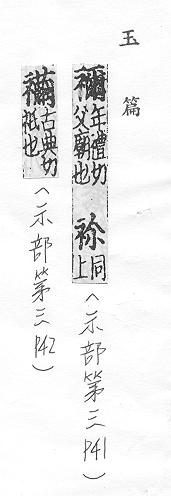 玉篇
禰 年禮切父廟也 祢 同上 (示部第三 P41)
古典切祇也 (示部第三 P42)